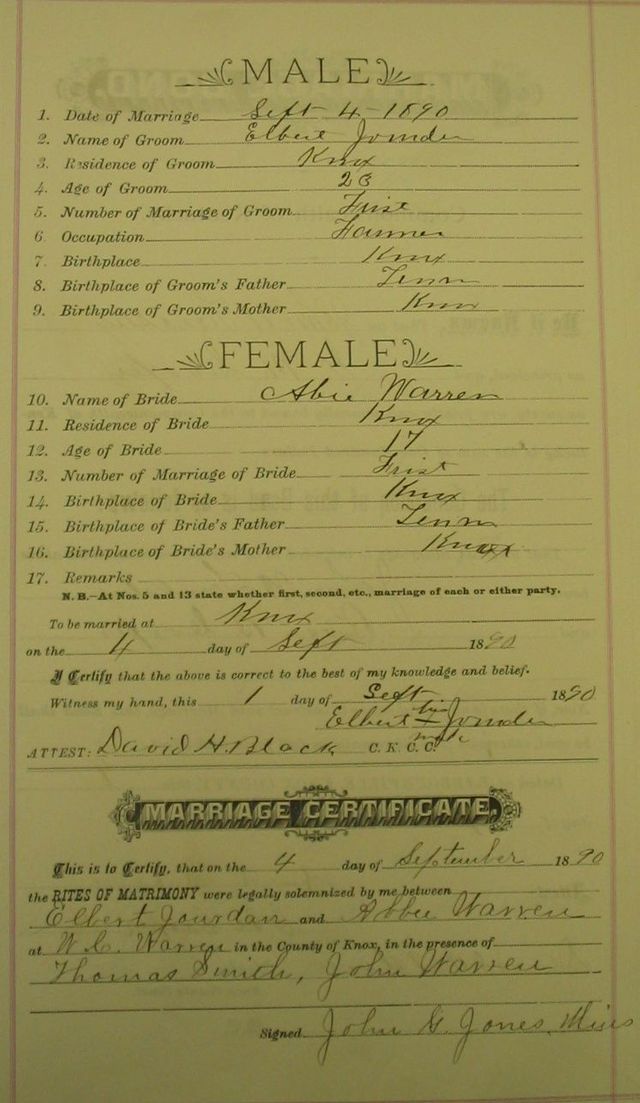 MALE
1. Date of Marriage Sept 4 - 1890
2. Name of Groom Elbert Jourdan
3. Residence of Groom Knox
4. Age of Groom 23
5. Number of Marriage of Groom First
6. Occupation Farmer
7. Birthplace Knox
8. Birthplace of Groom's Father Tenn
9. Birthplace of Groom's Mother Knox
FEMALE
10. Name of Bride Abie Warren
11. Residence of Bride Knox
12. Age of Bride 17
13. Number of Marriage of Bride Frist
14. Birthplace of Bride Knox
15. Birthplace of Bride's Father Tenn
16. Birthplace of Bride's Mother Knox
17. Remarks
N. B.—At Nos. 5 and 13 state whether first, second, etc., marriage of each or either party.
To be married at Knox
on the 4 day of Sept 1890
I Certify that the above is correct to the best of my knowledge and belief.
Witness my hand, this 1 day of Sept 1890
Elbert his Jourdan
mark
ATTEST: David H. Black C. K. C. C.
MARRIAGE CERTIFICATE.
This is to Certify, that on the 4 day of September 1890
the RITES OF MATRIMONY were legally solemnized by me between
Elbert Jourdan and Abbie Warren
at W. C. Warren in the County of Knox, in the presence of
Thomas Smith, John Warren
Signed John G. Jones, Mins